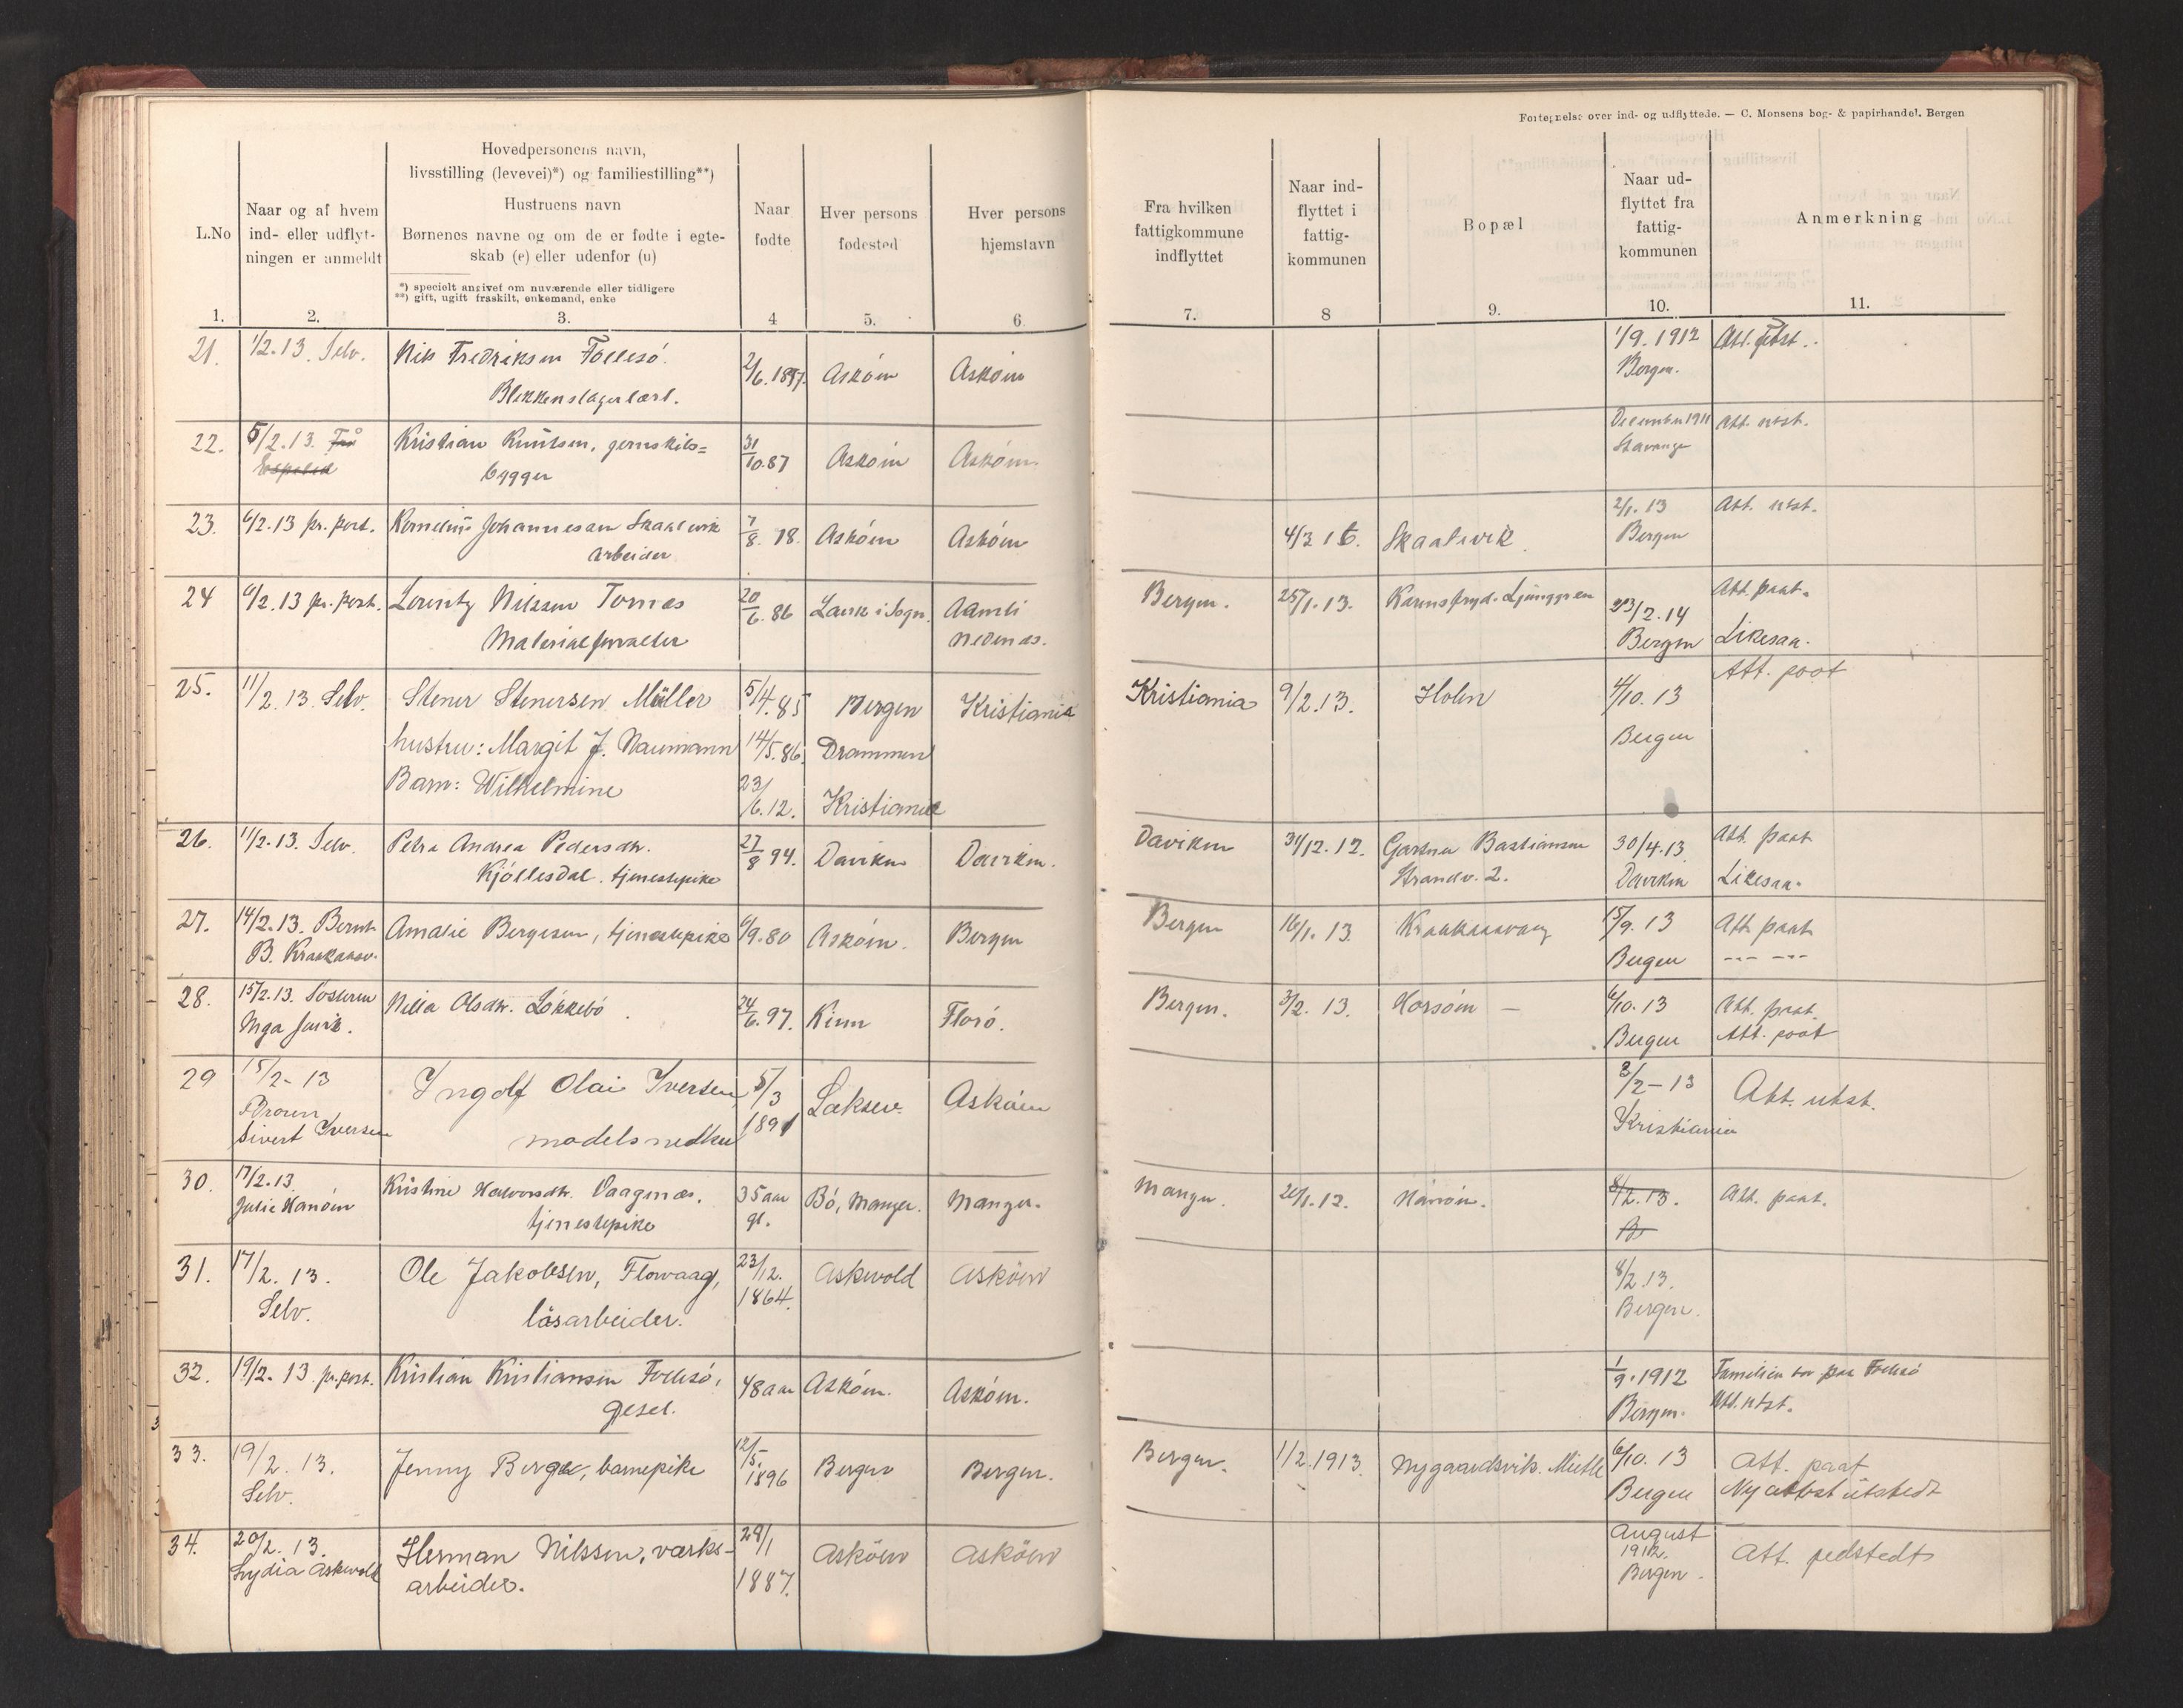 Fortegnelse over ind- og udflyttede. — C. Monsens bog- & papirhandel, Bergen
L.No
Naar og af hvem
ind- eller udflyt-
ningen er anmeldt
Hovedpersonens navn,
livsstilling (levevei)*) og familiestilling**)
Hustruens navn
Børnenes navne og om de er fødte i egte-
skab (e) eller udenfor (u)
*) specielt angivet om nuværende eller tidligere
**) gift, ugift fraskilt, enkemand, enke
Naar
fødte
Hver persons
fødested
Hver persons
hjemstavn
Fra hvilken
fattigkommune
indflyttet
Naar ind-
flyttet i
fattig-
kommunen
Bopæl
Naar ud-
flyttet fra
fattig-
kommunen
Anmerkning
1. 2. 3. 4 5. 6. 7. 8 9. 10. 11.
21. 1/2.13. Selv. Nils Fredriksen Follesö. 2/6.1897. Asköen Asköen 1/9.1912 Att. utst.
Blikkenslagerlærl. Bergen.
22. 5/2.13. Kristian Knutsen, jernskibs= 31/10.87 Asköen Asköen. December 1911 Att. utst.
bygger Stavanger
23. 6/2.13 pr. post. Kornelius Johannesen Skaalevik 7/8.78. Asköen Asköen 4/3 16. Skaalevik. 2/1.13 Att. utst.
arbeider Bergen
24 6/2.13 pr. post. Lorentz Nilssen Tornæs 20/6.86 Lavik i Sogn. Aamli Bergen. 25/1.13. Ljunggren 23/2.14 Att. paat.
Materialforvalter Nedenæs. Bergen Likesaa.
25. 11/2.13. Selv. Stener Stenersen Müller 5/4.85 Bergen Kristiania Kristiania 9/2.13. Holen 4/10.13 Att. paat
hustru: Margit J. Naumann 14/5.86. Drammen Bergen
Barn: Wilhelmine 23/6.12. Kristiania
26. 11/2.13. Selv. Petra Andrea Pedersdtr. 27/8 94. Daviken Daviken. Daviken 31/12.12. Gartner Bastiansen 30/4.13. Att. paat
Kjöllesdal, tjenestepike Strandv. 2. Daviken Likesaa.
27. 14/2.13. Bernt Amalie Bergesen, tjenestepike 6/9.80 Asköen. Bergen Bergen 16/1.13. Kraakaasvaag 15/9.13 Att. paat
B. Kraakaasv. Bergen --- ---
28. 15/2.13. Söstren Nilla Olsdtr. Løkkebö. 24/6.97. Kinn Florö. Bergen. 3/2.13. Horsöen — 6/10.13 Att. paat.
Inga Bergen Att. paat
29 15/2-13 Ingolf Olai Iversen, 5/3 1891 Laksev. Asköen 3/2-13 Att. utst.
Broren
Sivert Iversen modelsnedker Kristiania
30. 17/2.13. Kristine Halvorsdtr. Vaagenæs, 35 aar Bö, Manger. Manger. Manger. 20/1.12. Hanöen. 8/2.13. Att. paat.
Julie Hanöen tjenestepike gl.
31. 17/2.13. Ole Jakobsen, Flowaag, 23/12. 1864. Askevold Asköen 8/2.13.
Selv. lösarbeider. Bergen.
32. 19/2.13 pr. post. Kristian Kristiansen Follesö, 48 aar Asköen. Asköen. 1/9.1912 Familien bor paa Follesö
gesel. Bergen. Att. utst.
33. 19/2.13. Jenny Berge, barnepike 12/5. 1896 Bergen Bergen. Bergen. 1/2.1913. Nygaardsvik. Mietle 6/10.13 Att. paat
Selv. Bergen Ny attest utstedt
34. 20/2.13. Herman Nilssen, værks- 28/1 1887. Asköen Asköen August 1912. Att. utstedt
Lydia Askevold arbeider. Bergen.